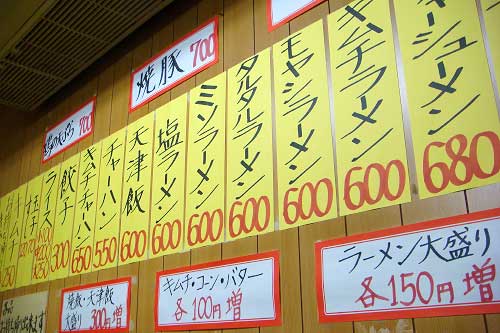 焼豚 700
ーシューメン 680
キムチラーメン 600
モヤシラーメン 600
タルタルラーメン 600
ミソラーメン 600
塩ラーメン 600
天津飯 600
チャーハン 550
キムチチャーハン 650
餃子 300
ライス
キムチ 250
ラーメン大盛り
各150円増
キムチ・コーン・バター
各100円増
焼飯・天津飯
大盛り 300円増